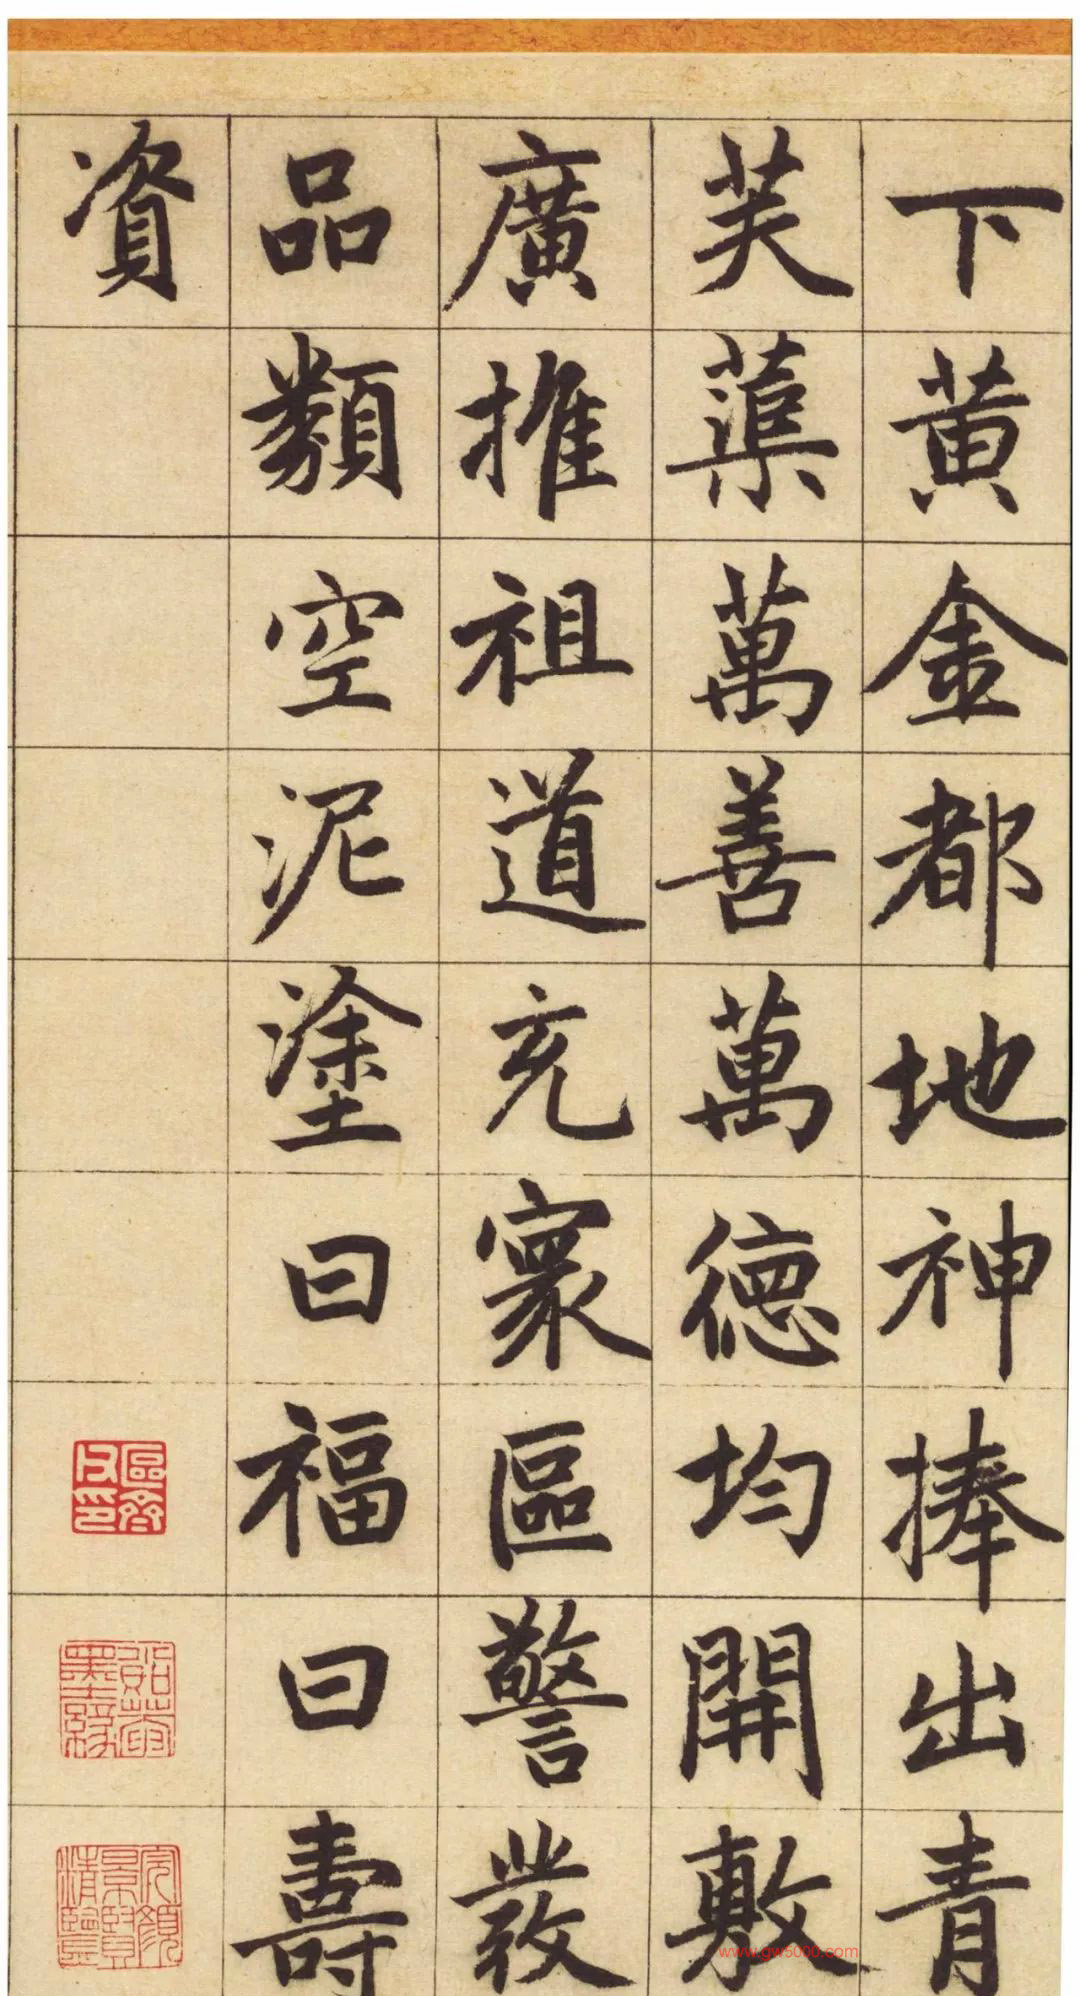 下黄金都地神捧出青
芙蕖萬善萬德均開敷
廣推祖道充寰區警發
品類空泥塗曰福曰壽
資
www.gw5000.com